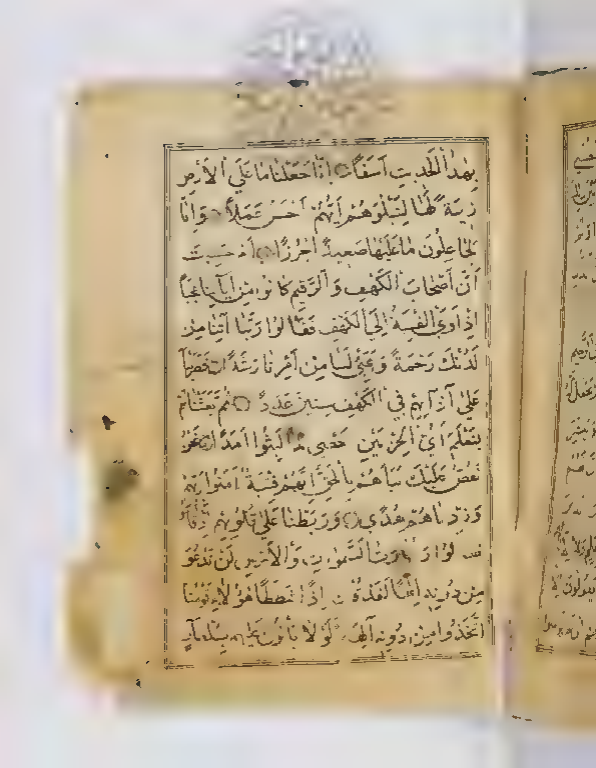 بهذا الحديث اسفا انا جعلنا ما على الارض
زينة لها لنبلوهم ايهم احسن عملا وانا
لجاعلون ما عليها صعيدا جرزا ام حسبت
ان اصحاب الكهف والرقيم كانوا من اياتنا عجبا
اذ اوى الفتية الى الكهف فقالوا ربنا اتنا من
لدنك رحمة وهيئ لنا من امرنا رشدا فضربنا
على اذانهم في الكهف سنين عددا ثم بعثناهم
لنعلم اي الحزبين احصى لما لبثوا امدا نحن
نقص عليك نباهم بالحق انهم فتية امنوا بربهم
وزدناهم هدى وربطنا على قلوبهم اذ قاموا
فقالوا ربنا رب السموات والارض لن ندعو
من دونه الها لقد قلنا اذا شططا هؤلاء قومنا
اتخذوا من دونه الهة لولا ياتون عليهم بسلطان